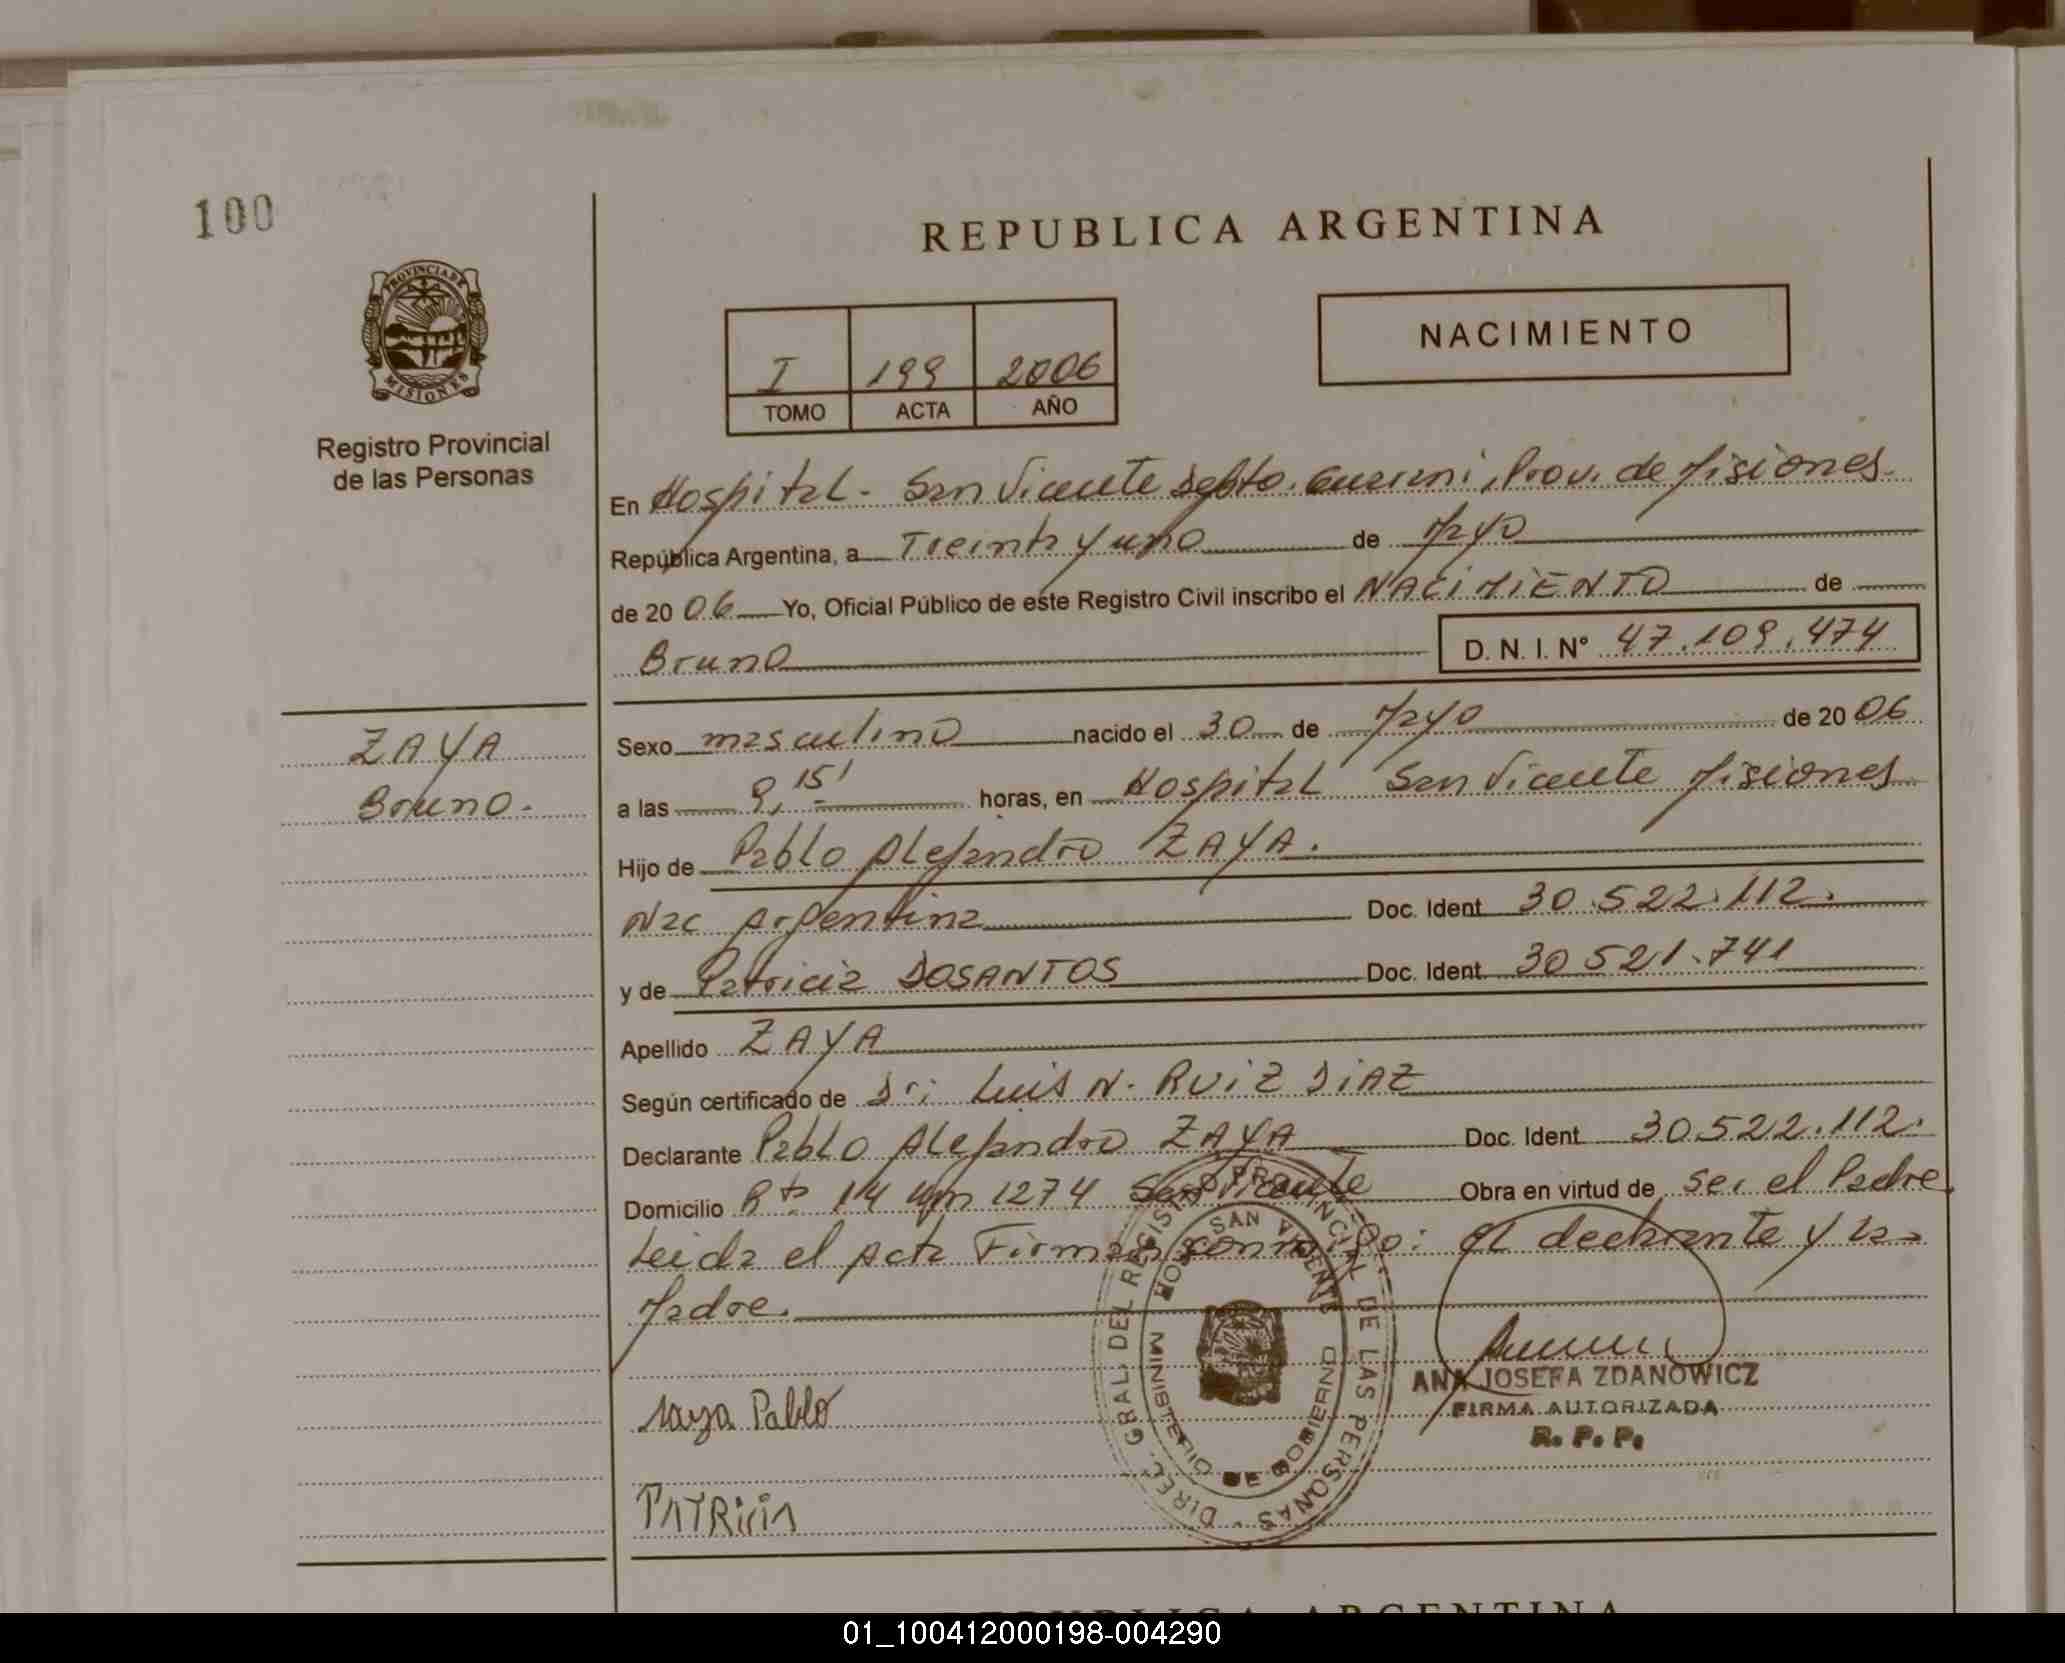 100
REPUBLICA ARGENTINA
PROVINCIA DE
MISIONES
Registro Provincial
de las Personas
NACIMIENTO
I 199 2006
TOMO ACTA AÑO
En Hospital - San Vicente Dpto. Guarani, Prov. de Misiones
República Argentina, a Treinta y uno de Mayo
de 20 06 Yo, Oficial Público de este Registro Civil inscribo el NACIMIENTO de
Bruno D. N. I. N° 47.109.474
ZAYA
Bruno.
Sexo masculino nacido el 30 de Mayo de 20 06
a las 9,15' horas, en Hospital San Vicente Misiones
Hijo de Pablo Alejandro ZAYA.
Nac Argentina Doc. Ident 30.522.112.
y de Patricia DOSANTOS Doc. Ident 30521.741
Apellido ZAYA
Según certificado de Dr: Luis N. RUIZ DIAZ
Declarante Pablo Alejandro ZAYA Doc. Ident 30522.112.
Domicilio Rta 14 Km 1274 San Vicente Obra en virtud de ser el Padre
Leida el acta Firman conmigo: el declarante y la
Madre.
DIREC. GRAL. DEL REGISTRO PROVINCIAL DE LAS PERSONAS -
HOSP. SAN VICENTE
MINISTERIO DE GOBIERNO
ANA JOSEFA ZDANOWICZ
FIRMA AUTORIZADA
R. P. P.
Zaya Pablo
PATRicia
REPUBLICA ARGENTINA
01_100412000198-004290